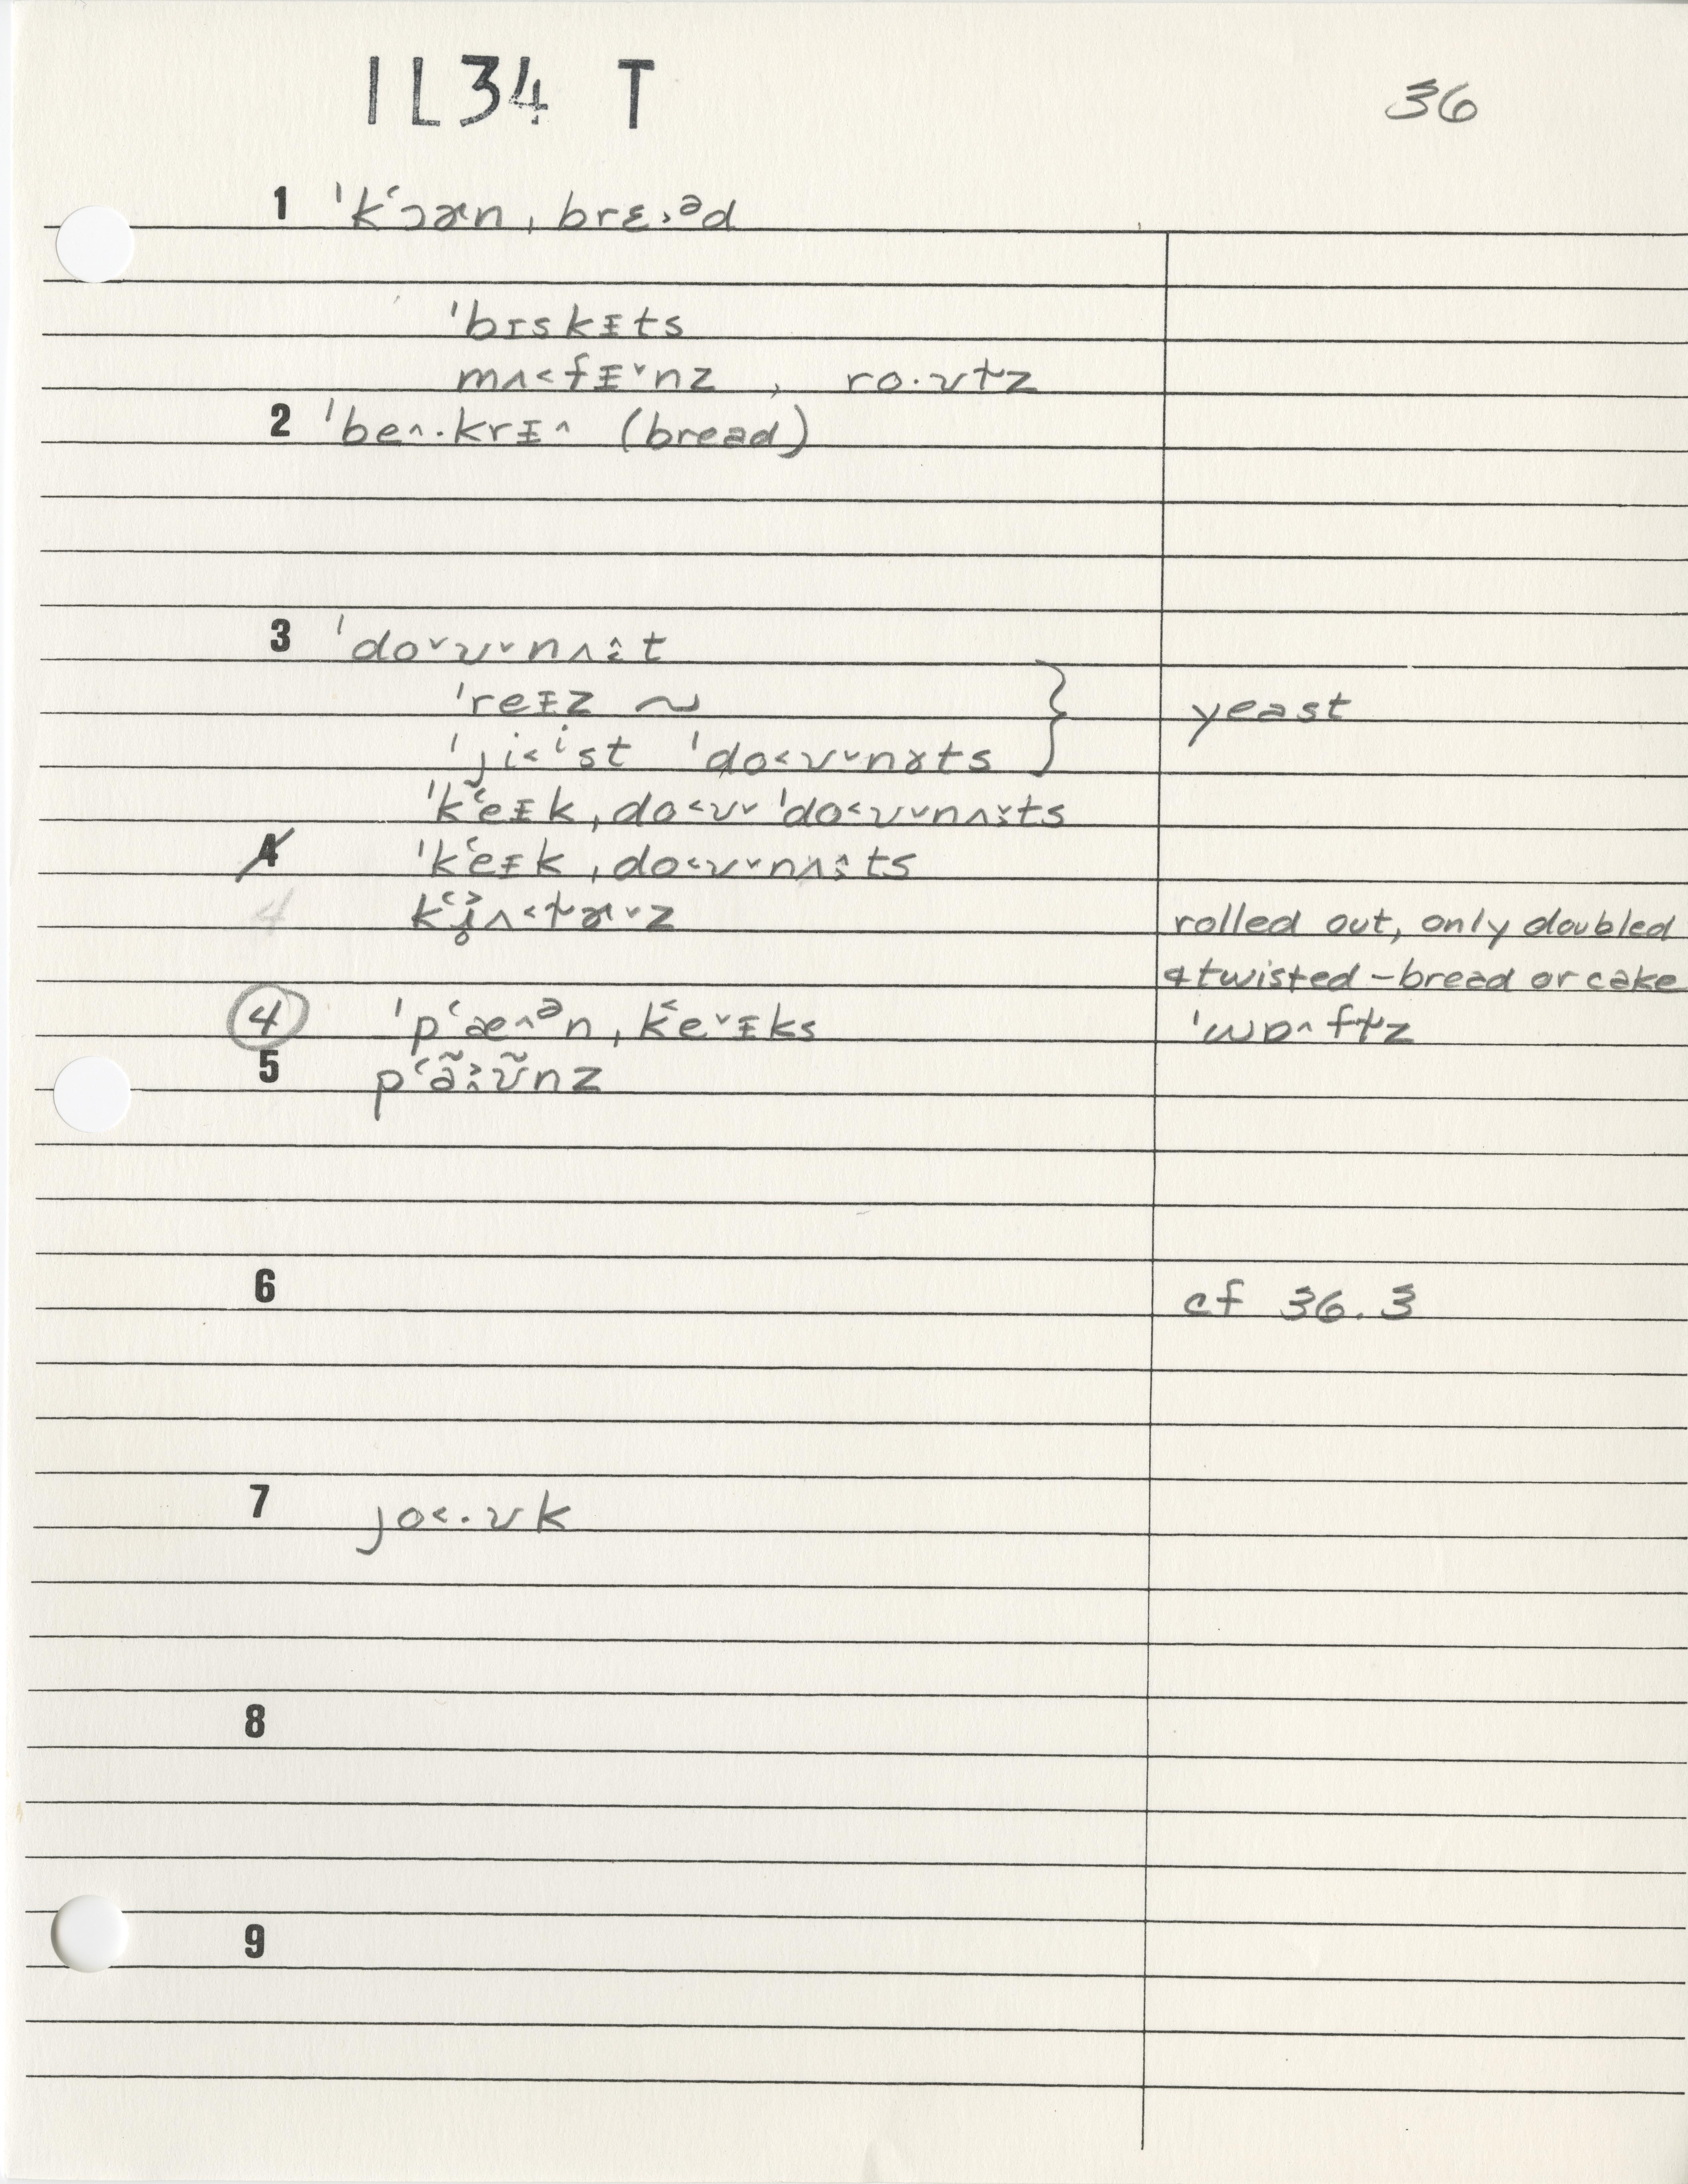 1L34 T 36
1 ˈkʻɔɚn ˌbrɛ˒·ᵊd
ˈbɪskᵻts
mʌ˂fᵻ˅nz , ro·ʊɫz
2 ˈbe˄·krᵻ˄ (bread)
3 ˈdo˅ʊ˅nʌ˔̂t
ˈreᵻz ~
ˈji˂ⁱst ˈdo˂ʊ˅nɤts } yeast
ˈkʻeᵻk ˌdo˂ʊ˅ ˈdo˂ʊ˅nʌ̌ts
4 ˈkʻeᵻk ˌdo˂ʊ˅nʌ̂ts
4 kʻj̥ʌ˂ɫɚ˅z rolled out, only doubled
& twisted – bread or cake
4 ˈpʻæ˄ᵊn ˌkʻe˅ᵻks ˈwɒ˄fɫz
5 pʻãʊ̃nz
6 cf 36.3
7 jo˂·ʊk
8
9